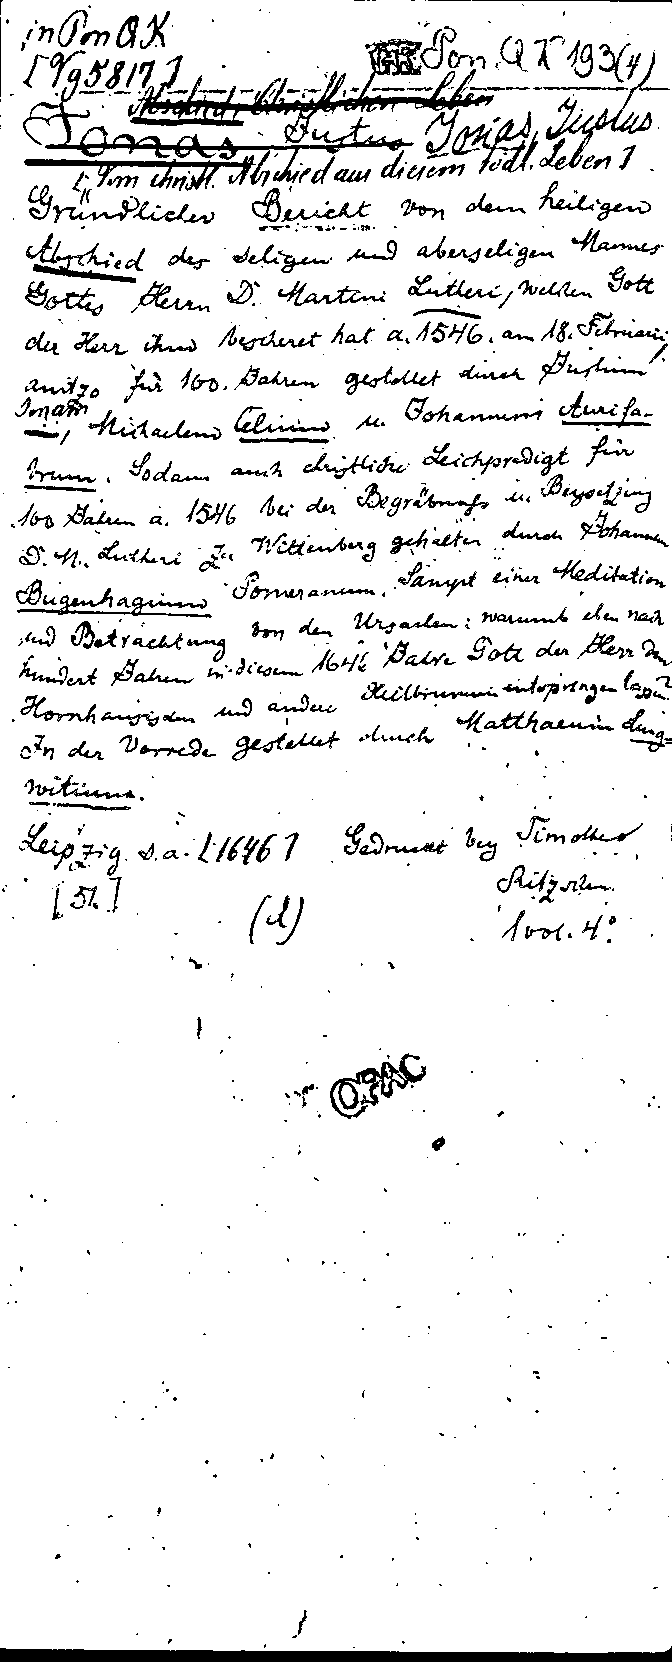 in Pon QK
[Vg 5817]
Pon. QK 193(4)
Abschied, Christlicher Leben
Jonas, Justus Josias, Justus
[Vom christl. Abschied aus diesem tödl. Leben]
Gründlicher Bericht von dem heiligen
Abschied des seligen und aberseligen Mannes
Gottes Herrn D. Martini Lutheri, welchen Gott
der Herr ihm bescheret hat a. 1546. am 18. Februarii,
anitzo für 100. Jahren gestellet durch Justum
Jonam, Michaelem Celium u. Johannem Aurifa-
brum. Sodann auch christliche Leichpredigt für
100 Jahren a. 1546 bei der Begräbnuss u. Beysetzung
D. M. Lutheri zu Wittenberg gehalten durch Johannem
Bugenhagium Pomeranum. Sampt einer Meditation
und Betrachtung von den Ursachen: warumb eben nach
hundert Jahren in diesem 1646 Jahre Gott der Herr den
Hornhausischen und andere Heilbrunnen entspringen lassen?
In der Vorrede gestellet durch Matthaeum Lung-
witium.
Leipzig s.a. [1646] Gedruckt bey Timotheo
Ritzschen.
[52.]
(d)
1 vol. 4°.
OPAC